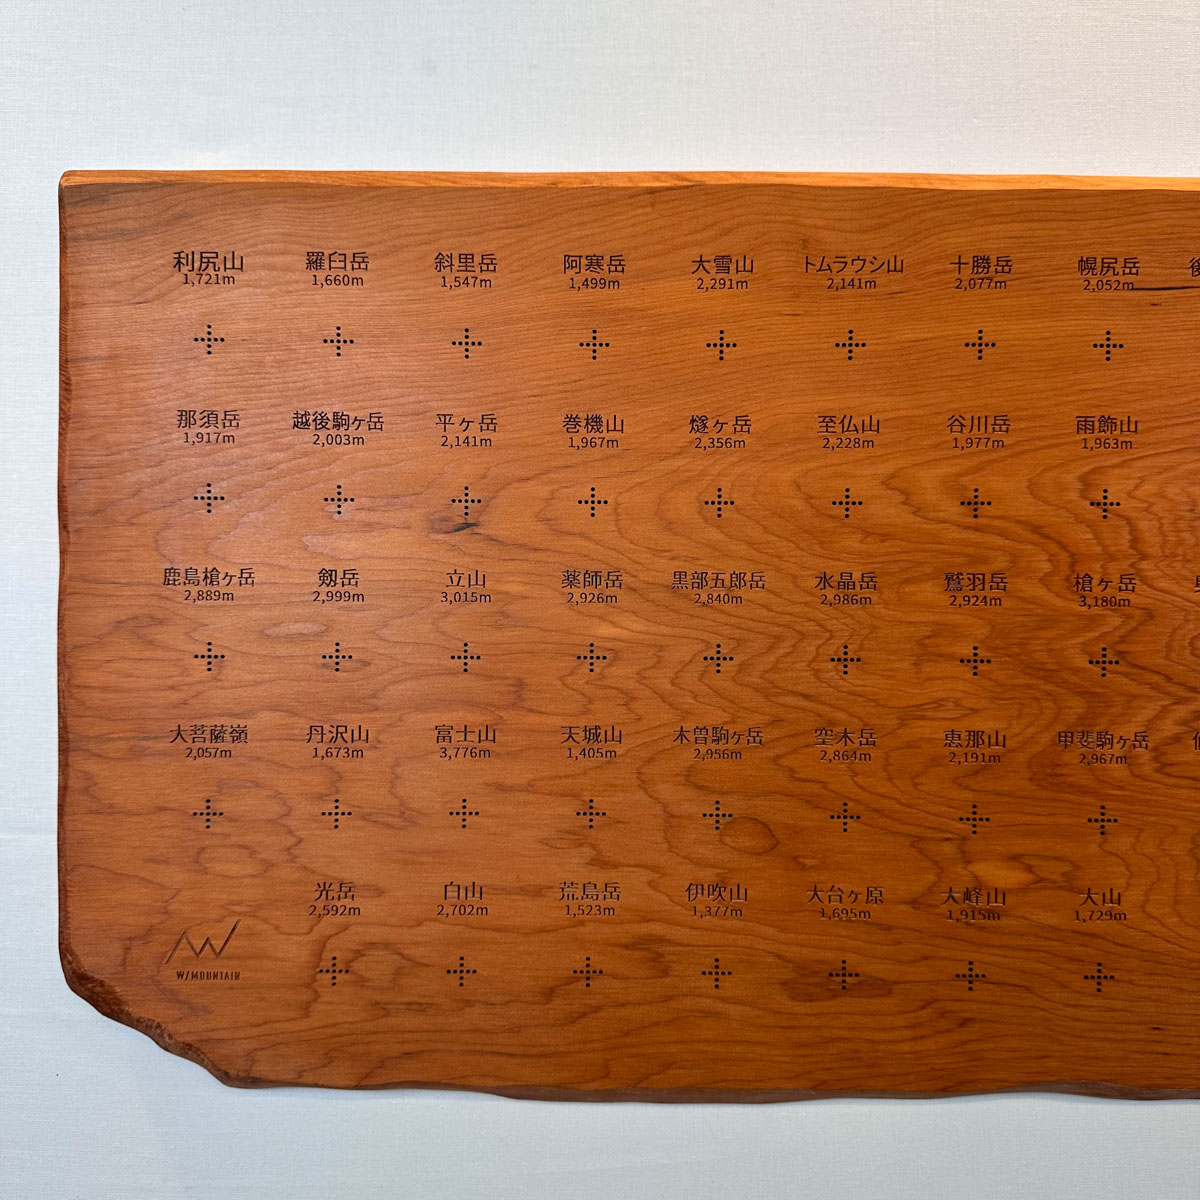 利尻山 羅臼岳 斜里岳 阿寒岳 大雪山 トムラウシ山 十勝岳 幌尻岳
1,721m 1,660m 1,547m 1,499m 2,291m 2,141m 2,077m 2,052m
那須岳 越後駒ヶ岳 平ヶ岳 巻機山 燧ヶ岳 至仏山 谷川岳 雨飾山
1,917m 2,003m 2,141m 1,967m 2,356m 2,228m 1,977m 1,963m
鹿島槍ヶ岳 剱岳 立山 薬師岳 黒部五郎岳 水晶岳 鷲羽岳 槍ヶ岳
2,889m 2,999m 3,015m 2,926m 2,840m 2,986m 2,924m 3,180m
大菩薩嶺 丹沢山 富士山 天城山 木曽駒ヶ岳 空木岳 恵那山 甲斐駒ヶ岳
2,057m 1,673m 3,776m 1,405m 2,956m 2,864m 2,191m 2,967m
光岳 白山 荒島岳 伊吹山 大台ヶ原 大峰山 大山
2,592m 2,702m 1,523m 1,377m 1,695m 1,915m 1,729m
W/MOUNTAIN